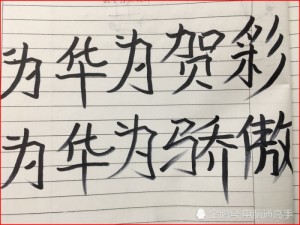 为华为贺彩
为华为骄傲